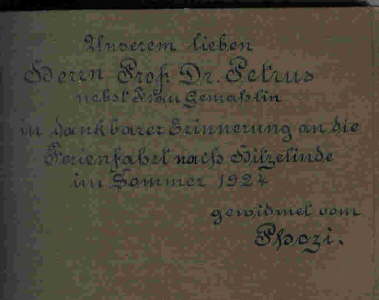 Unserem lieben
Herrn Prof. Dr. Petrus
nebst Frau Gemahlin
in dankbarer Erinnerung an die
Ferienfahrt nach Hilzelinde
im Sommer 1924
gewidmet vom
Phozi.